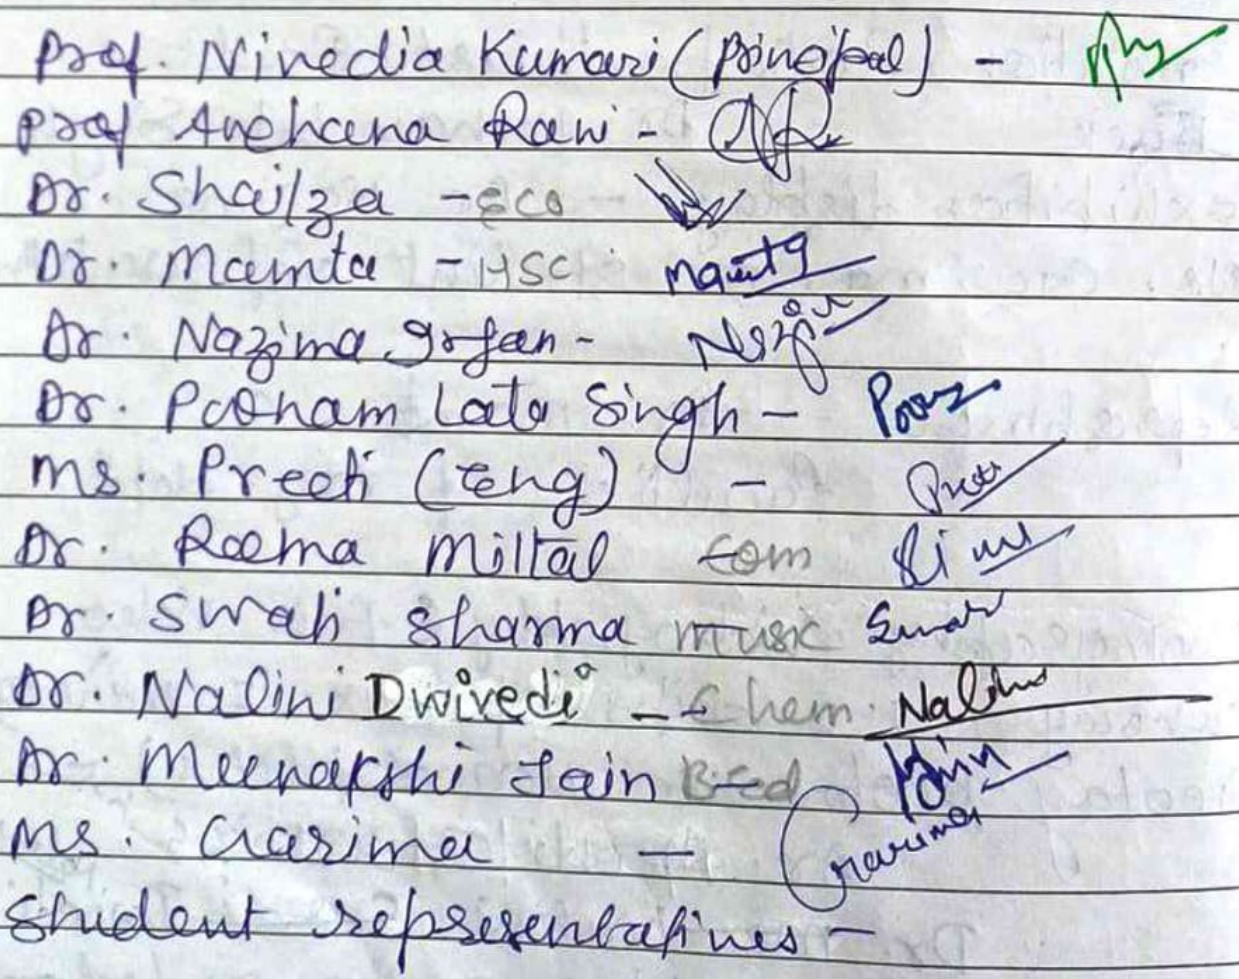 Prof. Nivedia Kumari (Principal) -
Prof Archana Rani -
Dr. Shailza - Eco
Dr. Mamta - HSC Mamta
Dr. Nazima Irfan -
Dr. Poonam Lata Singh -
Ms. Preeti (Eng) -
Dr. Reema Mittal Com
Dr. Swati Sharma Music
Dr. Nalini Dwivedi - Chem. Nalini
Dr. Meenakshi Jain B.Ed
Ms. Garima - Garima
Student representatives -